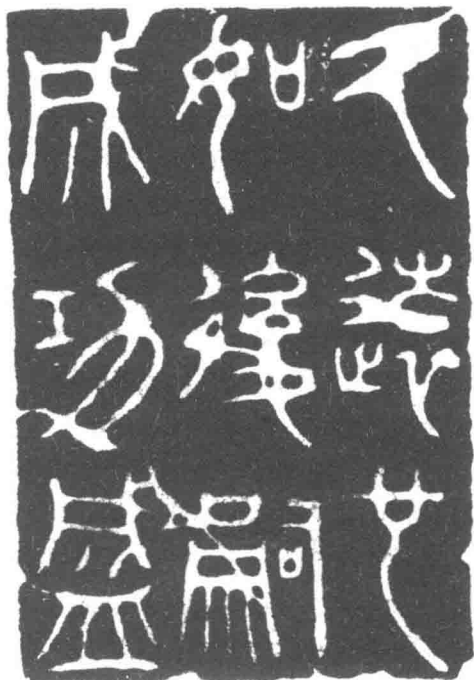 久遠也
如後嗣
成功盛